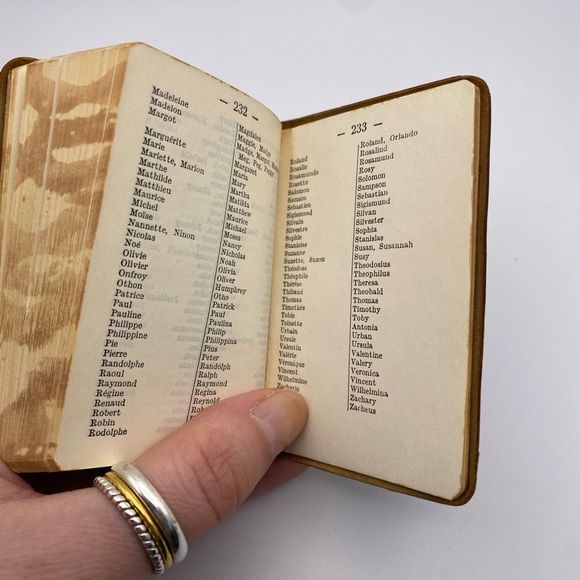 — 232 —
Madeleine Magdalen
Madelon Maggie, Madge
Margot Madge, Margot,
Meg, Peg, Peggy
Marguérite Margaret
Marie Maria
Mariette, Marion Mary
Marthe Martha
Mathilde Matilda
Matthieu Matthew
Maurice Maurice
Michel Michael
Moïse Moses
Nannette, Ninon Nancy
Nicolas Nicholas
Noé Noah
Olivie Olivia
Olivier Oliver
Onfroy Humphrey
Othon Otho
Patrice Patrick
Paul Paul
Pauline Paulina
Philippe Philip
Philippine Philippina
Pie Pius
Pierre Peter
Randolphe Randolph
Raoul Ralph
Raymond Raymond
Régine Regina
Renaud Reynold
Robert
Robin
Rodolphe
— 233 —
Roland Roland, Orlando
Rosalie Rosalind
Rosamonde Rosamund
Rosette Rosy
Salomon Solomon
Samson Sampson
Sébastien Sebastian
Sigismond Sigismund
Silvain Silvan
Silvestre Silvester
Sophie Sophia
Stanislas Stanislas
Suzanne Susan, Susannah
Suzette, Suzon Susy
Théodose Theodosius
Théophile Theophilus
Thérèse Theresa
Thibaud Theobald
Thomas Thomas
Timothée Timothy
Tobie Toby
Toinette Antonia
Urbain Urban
Ursule Ursula
Valentin Valentine
Valérie Valery
Véronique Veronica
Vincent Vincent
Wilhelmine Wilhelmina
Zacharie Zachary
Zacheus